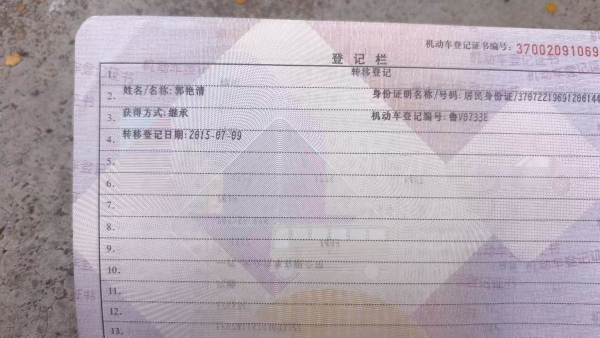 机动车登记证书编号: 37002091069
登记栏
1.
转移登记
2. 姓名/名称: 郭艳清
身份证明名称/号码: 居民身份证/
3. 获得方式: 继承
机动车登记编号: 鲁V0733E
4. 转移登记日期: 2015-07-09
5.
6.
7.
8.
9.
10.
11.
12.
13.